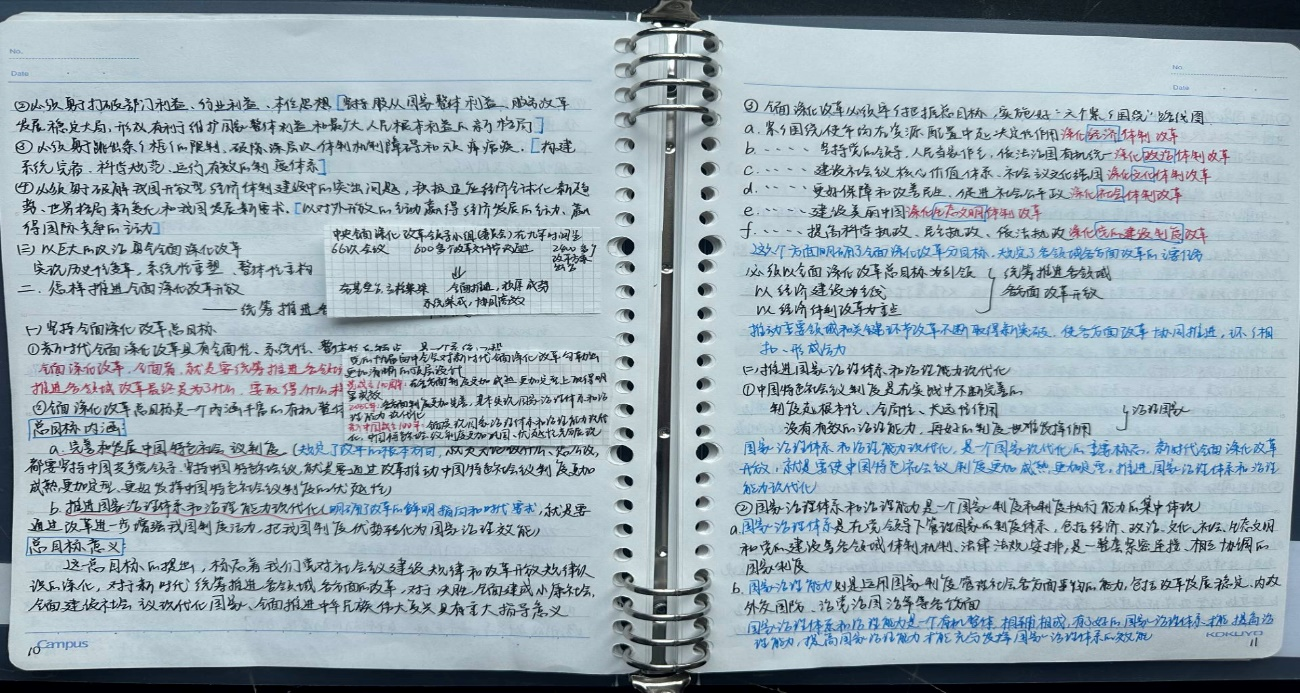 No.
Date
②必须勇于打破部门利益、行业利益、本位思想[坚持服从国家整体利益、服务改革
发展稳定大局,形成有利于维护国家整体利益和最大人民根本利益的新格局]
③必须勇于跳出条条框框限制,破除深层次体制机制障碍和顽瘴痼疾。[构建
系统完备、科学规范、运行有效的制度体系]
④必须勇于破解我国开放型经济体制建设中的突出问题,积极适应经济全球化新趋
势、世界格局新变化和我国发展新要求。[以对外开放的主动赢得经济发展的主动、赢
得国际竞争的主动]
(三)以巨大的政治勇气全面深化改革
实现历史性变革、系统性重塑、整体性重构
二、怎样推进全面深化改革开放
——统筹推进各
中央全面深化改革领导小组(委员会)在九年时间里
66次会议 600多个改革文件审议通过 2400多个改革方案出台
夯基垒台、立柱架梁 全面推进,积厚成势
系统集成,协同高效
(一)坚持全面深化改革总目标
①新时代全面深化改革具有全面性、系统性、整体性的特点,是一个
全面深化改革,全面者,就是要统筹推进各领域
推进各领域改革最终是为了什么、要取得什么
②全面深化改革总目标是一个内涵丰富的有机整体
党的十九届四中全会对新时代全面深化改革勾勒出
更加清晰的顶层设计
党成立100周年:在各方面制度更加成熟更加定型上取得明
显成效
2035年:各方面制度更加完善,基本实现国家治理体系和治
理能力现代化
新中国成立100年:全面实现国家治理体系和治理能力现代
化,中国特色社会主义制度更加巩固、优越性充分展现
总目标内涵:
a. 完善和发展中国特色社会主义制度(规定了改革的根本方向,
都要坚持中国共产党领导、坚持中国特色社会主义,就是要通过改革推动中国特色社会主义制度更加
成熟更加定型、更好发挥中国特色社会主义制度的优越性)
b. 推进国家治理体系和治理能力现代化(明确了改革的鲜明指向和时代要求,就是要
通过改革进一步增强我国制度活力,把我国制度优势转化为国家治理效能)
总目标意义
这一总目标的提出,标志着我们党对社会主义建设规律和改革开放规律认
识的深化,对于新时代统筹推进各领域各方面改革,对于决胜全面建成小康社会、
全面建设社会主义现代化国家、全面推进中华民族伟大复兴具有重大指导意义
10 Campus
No.
Date
③全面深化改革必须牢牢把握总目标,实施好“六个紧紧围绕”路线图
a. 紧紧围绕使市场在资源配置中起决定性作用深化经济体制改革
b. ····· 坚持党的领导、人民当家作主、依法治国有机统一深化政治体制改革
c. ····· 建设社会主义核心价值体系、社会主义文化强国深化文化体制改革
d. ····· 更好保障和改善民生、促进社会公平正义深化社会体制改革
e. ····· 建设美丽中国深化生态文明体制改革
f. ····· 提高科学执政、民主执政、依法执政深化党的建设制度改革
这六个方面明确了全面深化改革分目标,规定了各领域各方面改革的主要任务
必须以全面深化改革总目标为引领
以经济建设为主线
以经济体制改革为重点
统筹推进各领域
各方面改革开放
推动重要领域和关键环节改革不断取得新突破、使各方面改革协同推进,环环相
扣、形成合力
(二)推进国家治理体系和治理能力现代化
①中国特色社会主义制度是在实践中不断完善的
制度起根本性、全局性、长远性作用
没有有效的治理能力,再好的制度也难发挥作用
治理国家
国家治理体系和治理能力现代化,是一个国家现代化的重要标志,新时代全面深化改革
开放,就是要使中国特色社会主义制度更加成熟更加定型,推进国家治理体系和治理
能力现代化
②国家治理体系和治理能力是一个国家制度和制度执行能力的集中体现
a. 国家治理体系是在党领导下管理国家的制度体系,包括经济、政治、文化、社会、生态文明
和党的建设等各领域体制机制、法律法规安排,是一整套紧密连接、相互协调的
国家制度
b. 国家治理能力则是运用国家制度管理社会各方面事务的能力,包括改革发展稳定、内政
外交国防、治党治国治军等各个方面
国家治理体系和治理能力是一个有机整体,相辅相成,有了好的国家治理体系才能提高治
理能力,提高国家治理能力才能充分发挥国家治理体系的效能
KOKUYO
11